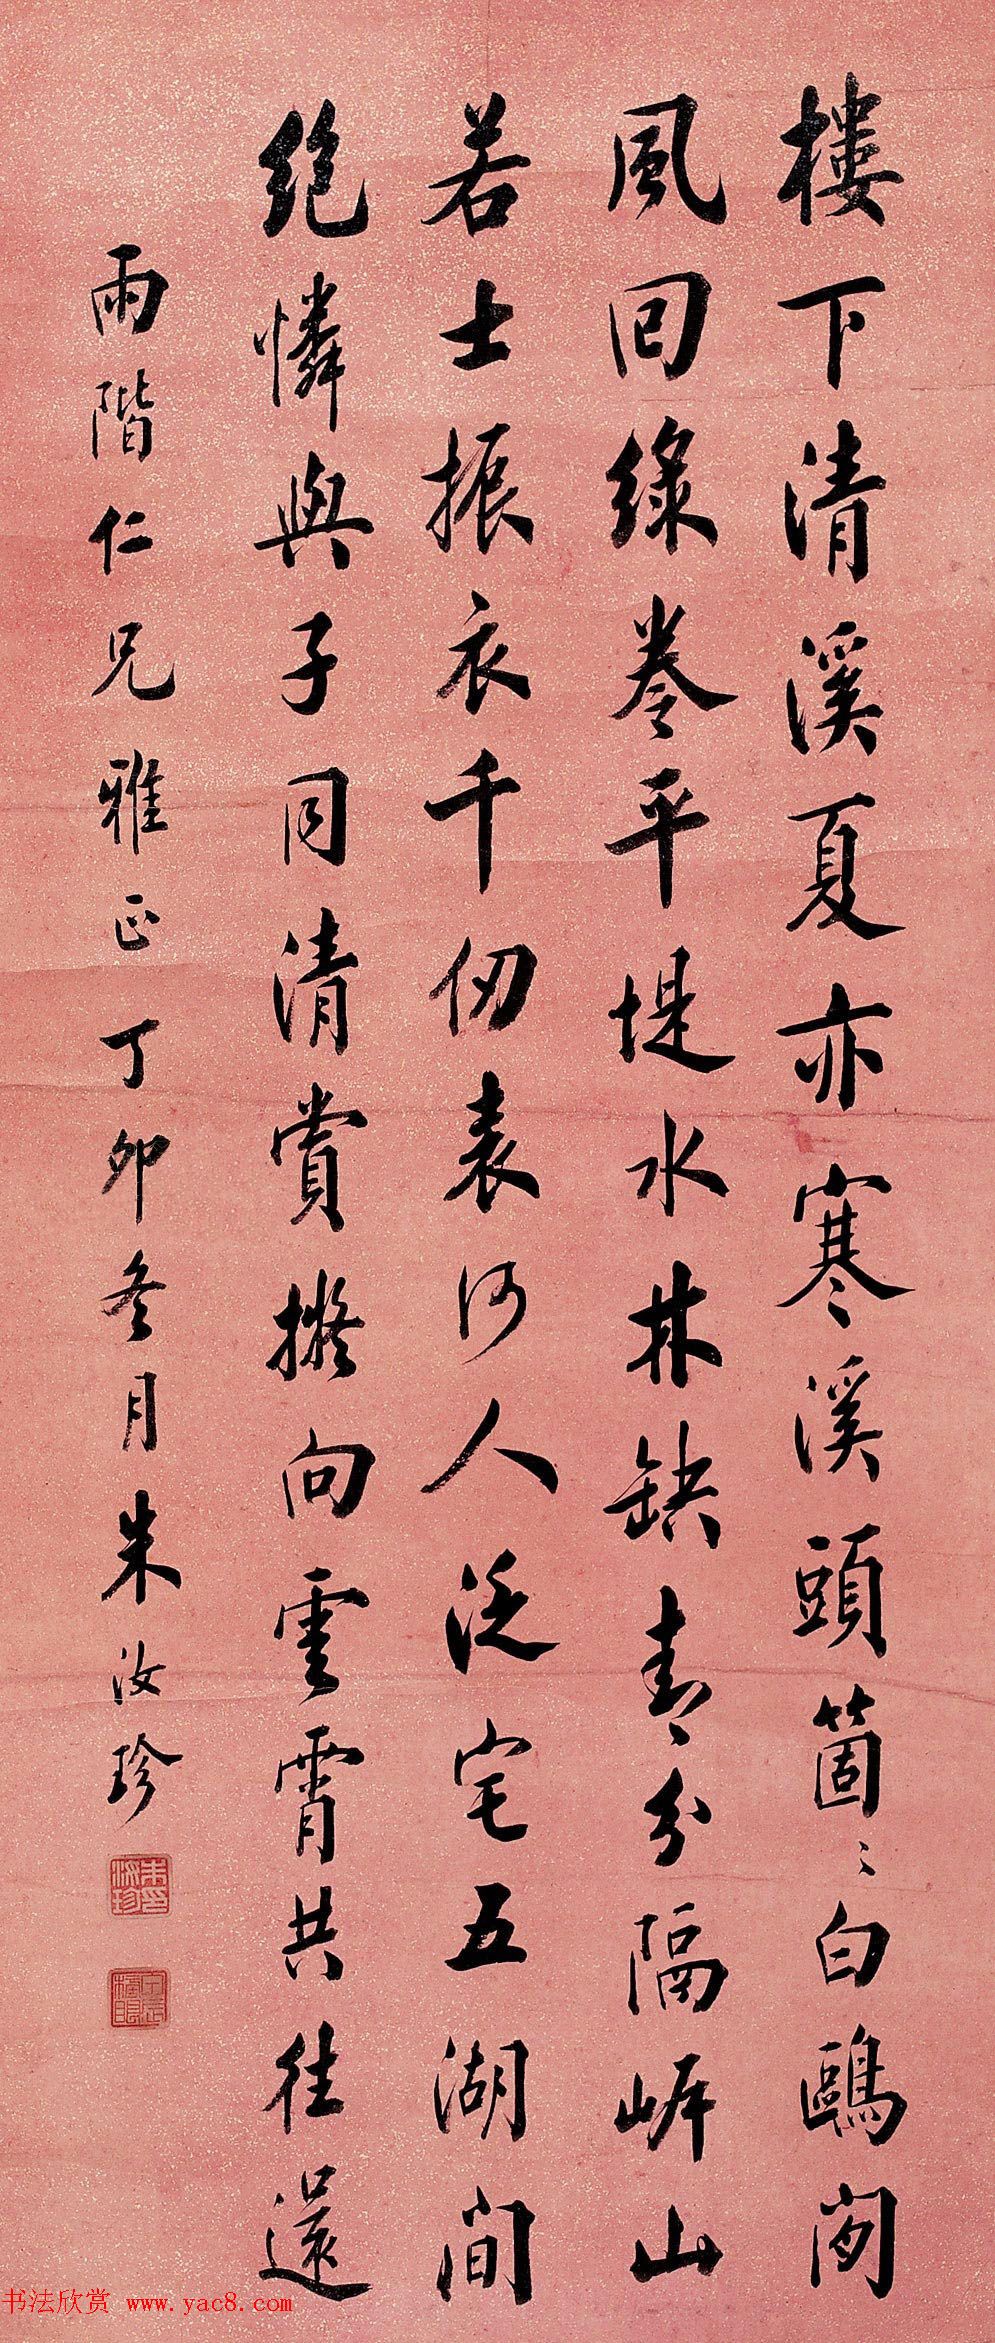 樓下清溪夏亦寒溪頭箇〻白鷗閑
風回綠卷平堤水林缺青分隔岸山
若士振衣千仞表何人泛宅五湖間
絕憐與子同清賞擬向雲霄共往還
雨階仁兄雅正丁卯冬月朱汝珍
朱汝珍印
甲辰榜眼
书法欣赏 www.yac8.com